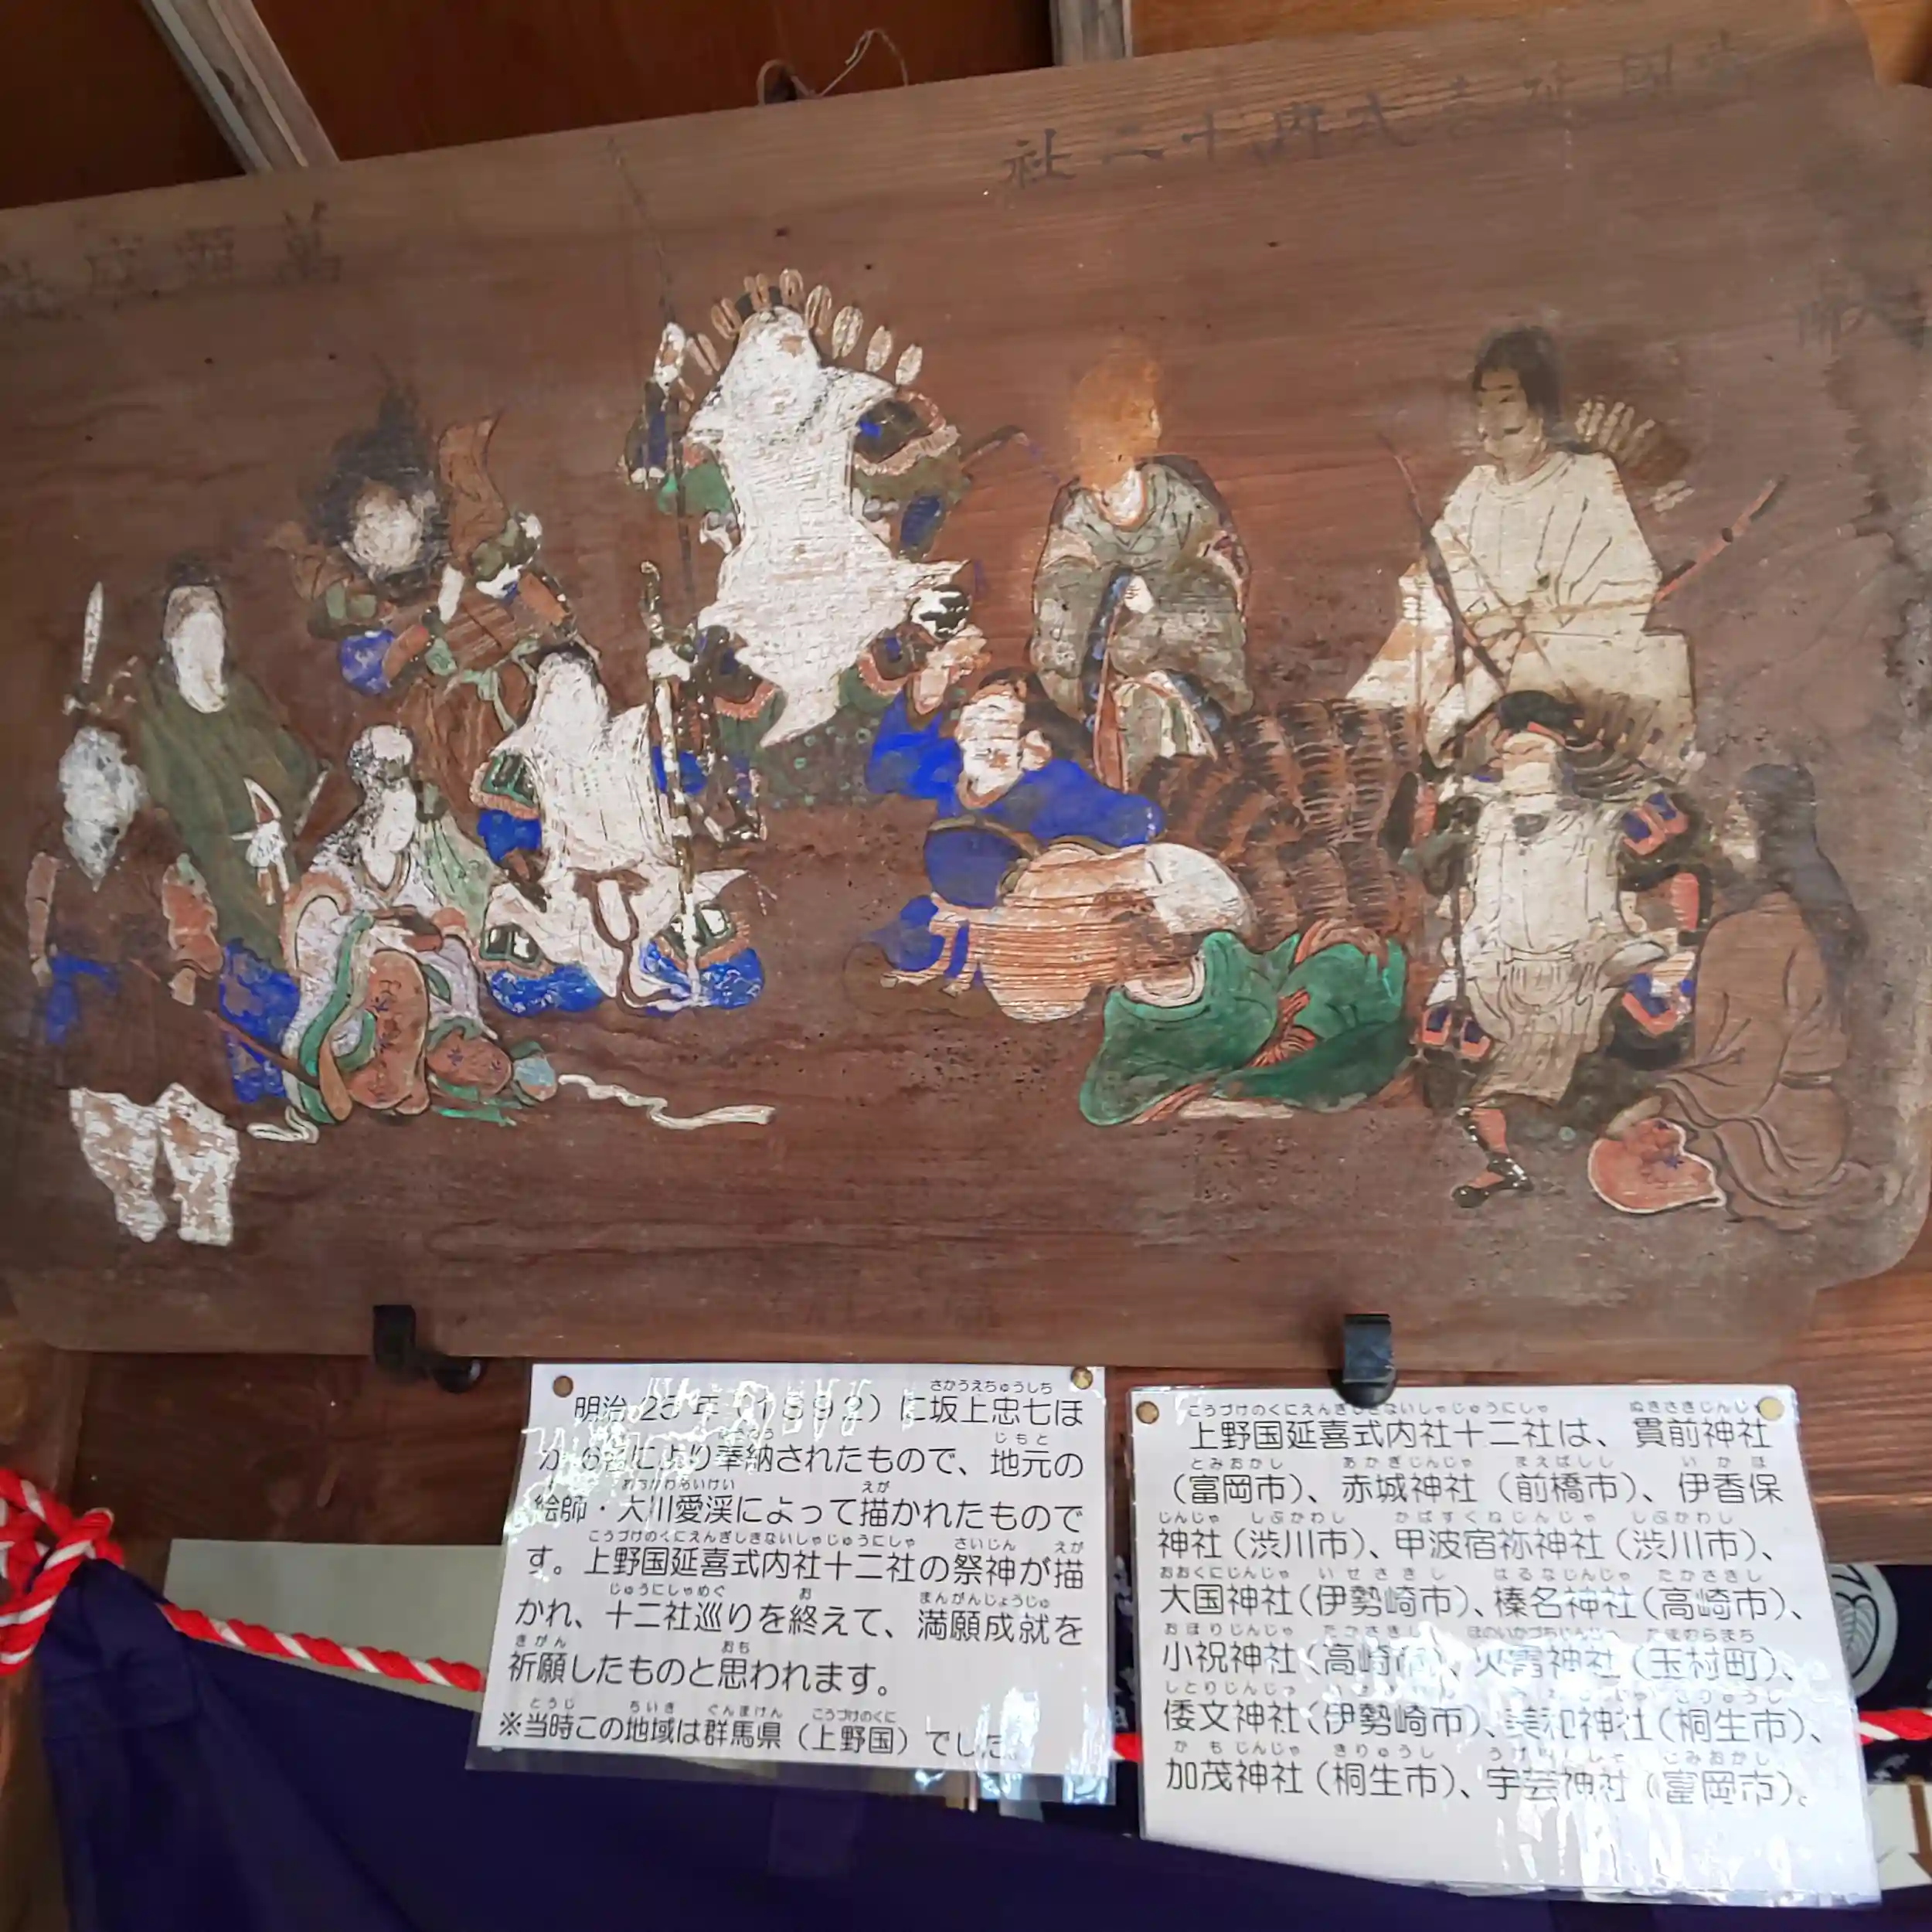 社二十内式
明治25年(1892)に坂上忠七ほ
か6名により奉納されたもので、地元の
絵師・大川愛渓によって描かれたもので
す。上野国延喜式内社十二社の祭神が描
かれ、十二社巡りを終えて、満願成就を
祈願したものと思われます。
※当時この地域は群馬県(上野国)でした。
上野国延喜式内社十二社は、貫前神社
(富岡市)、赤城神社(前橋市)、伊香保
神社(渋川市)、甲波宿祢神社(渋川市)、
大国神社(伊勢崎市)、榛名神社(高崎市)、
小祝神社(高崎市)、火雷神社(玉村町)、
倭文神社(伊勢崎市)、美和神社(桐生市)、
加茂神社(桐生市)、宇芸神社(富岡市)。